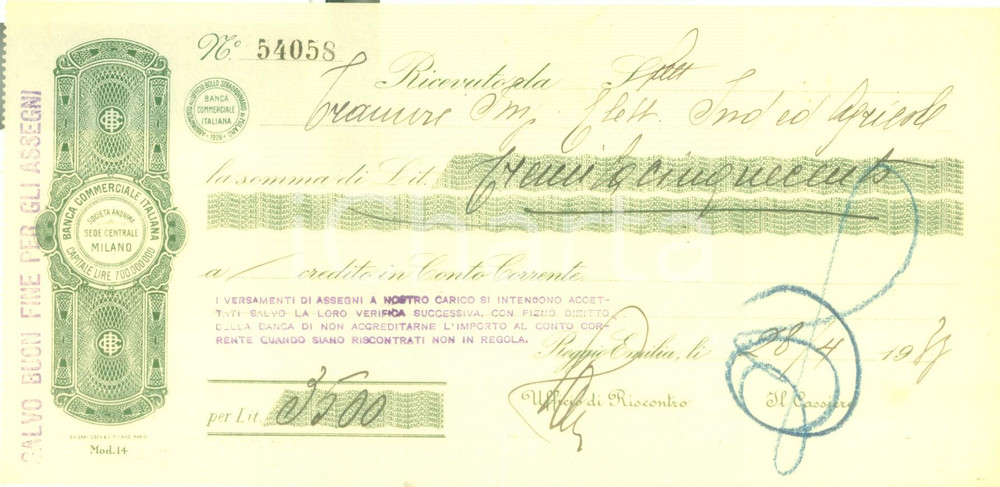 SALVO BUON FINE PER GLI ASSEGNI
BANCA COMMERCIALE ITALIANA
SOCIETÀ ANONIMA
SEDE CENTRALE
MILANO
CAPITALE LIRE 700.000.000
Mod. 14
N.º 54058
BANCA
COMMERCIALE
ITALIANA
1926
Ricevuto da Spett
Imp. Elett. Ind ed Agricole
la somma di Lit. tremilacinquecento
iCharta
a credito in Conto Corrente.
I VERSAMENTI DI ASSEGNI A NOSTRO CARICO SI INTENDONO ACCET-
TATI SALVO LA LORO VERIFICA SUCCESSIVA, CON PIENO DIRITTO
DELLA BANCA DI NON ACCREDITARNE L'IMPORTO AL CONTO COR-
RENTE QUANDO SIANO RISCONTRATI NON IN REGOLA.
Reggio Emilia, li 28/4 19
per Lit. 3500
Ufficio di Riscontro
Il Cassiere